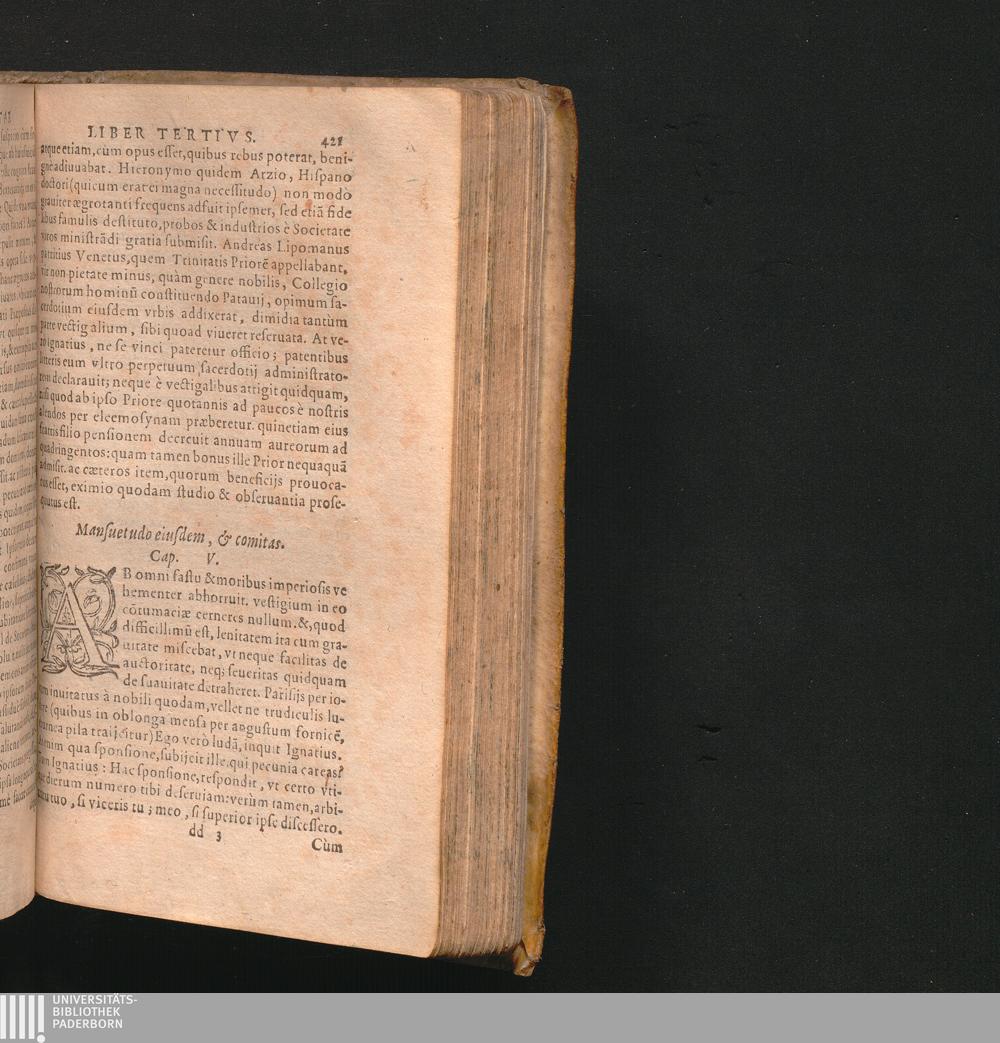 LIBER TERTIVS. 421
atque etiam, cùm opus esset, quibus rebus poterat, beni-
gnè adiuuabat. Hieronymo quidem Arzio, Hispano
doctori (quicum erat ei magna necessitudo) non modò
grauiter ægrotanti frequens adfuit ipsemet, sed etiã fide
libus famulis destituto, probos & industrios è Societate
viros ministrãdi gratia submisit. Andreas Lipomanus
patritius Venetus, quem Trinitatis Priorẽ appellabant,
vir non pietate minus, quàm genere nobilis, Collegio
nostrorum hominũ constituendo Patauij, opimum sa-
cerdotium eiusdem vrbis addixerat, dimidia tantùm
parte vectigalium, sibi quoad viueret reseruata. At ve-
rò Ignatius, ne se vinci pateretur officio; patentibus
litteris eum vltro perpetuum sacerdotij administrato-
rem declarauit; neque è vectigalibus attigit quidquam,
nisi quod ab ipso Priore quotannis ad paucos è nostris
alendos per eleemosynam præberetur. quinetiam eius
fratris filio pensionem decreuit annuam aureorum ad
quadringentos: quam tamen bonus ille Prior nequaquã
admisit. ac cæteros item, quorum beneficijs prouoca-
tus esset, eximio quodam studio & obseruantia prose-
quutus est.
Mansuetudo eiusdem, & comitas.
Cap. V.
AB omni fastu & moribus imperiosis ve
hementer abhorruit. vestigium in eo
cõtumaciæ cerneres nullum. &, quod
difficillimũ est, lenitatem ita cum gra-
uitate miscebat, vt neque facilitas de
auctoritate, neq; seueritas quidquam
de suauitate detraheret. Parisijs per io-
cum inuitatus à nobili quodam, vellet ne trudiculis lu-
dere (quibus in oblonga mensa per angustum fornicẽ,
eburnea pila traijcitur) Ego verò ludã, inquit Ignatius.
qua sponsione, subijcit ille, qui pecunia careas?
Tum Ignatius: Hac sponsione, respondit, vt certo vti-
que dierum numero tibi deseruiam: verùm tamen, arbi-
tratu tuo, si viceris tu; meo, si superior ipse discessero.
dd 3 Cùm
UNIVERSITÄTS-
BIBLIOTHEK
PADERBORN